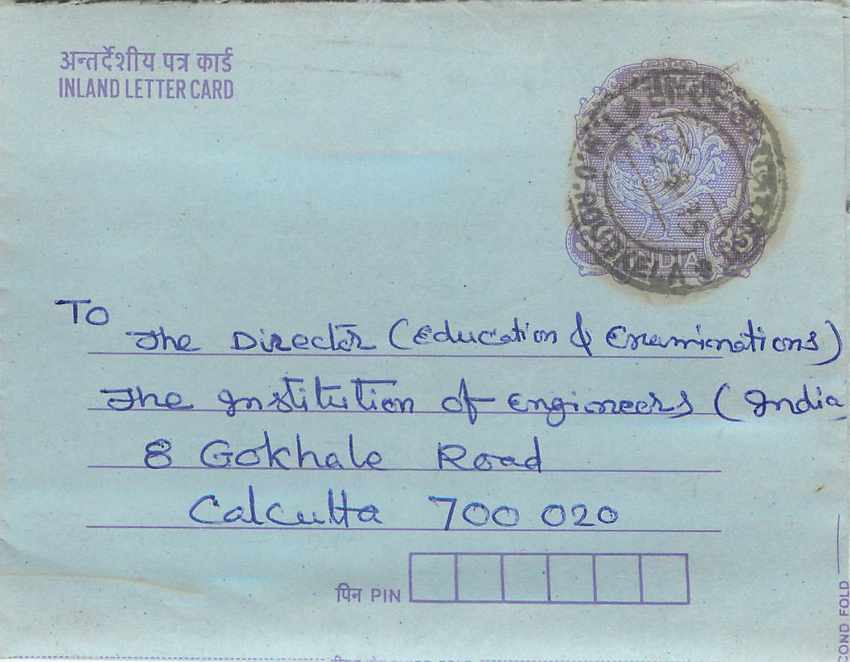 अन्तर्देशीय पत्र कार्ड
INLAND LETTER CARD
35
INDIA
ROURKELA
TO
The Director (Education & Examinations)
The Institution of Engineers (India
8 Gokhale Road
Calcutta 700 020
पिन PIN
OND FOLD